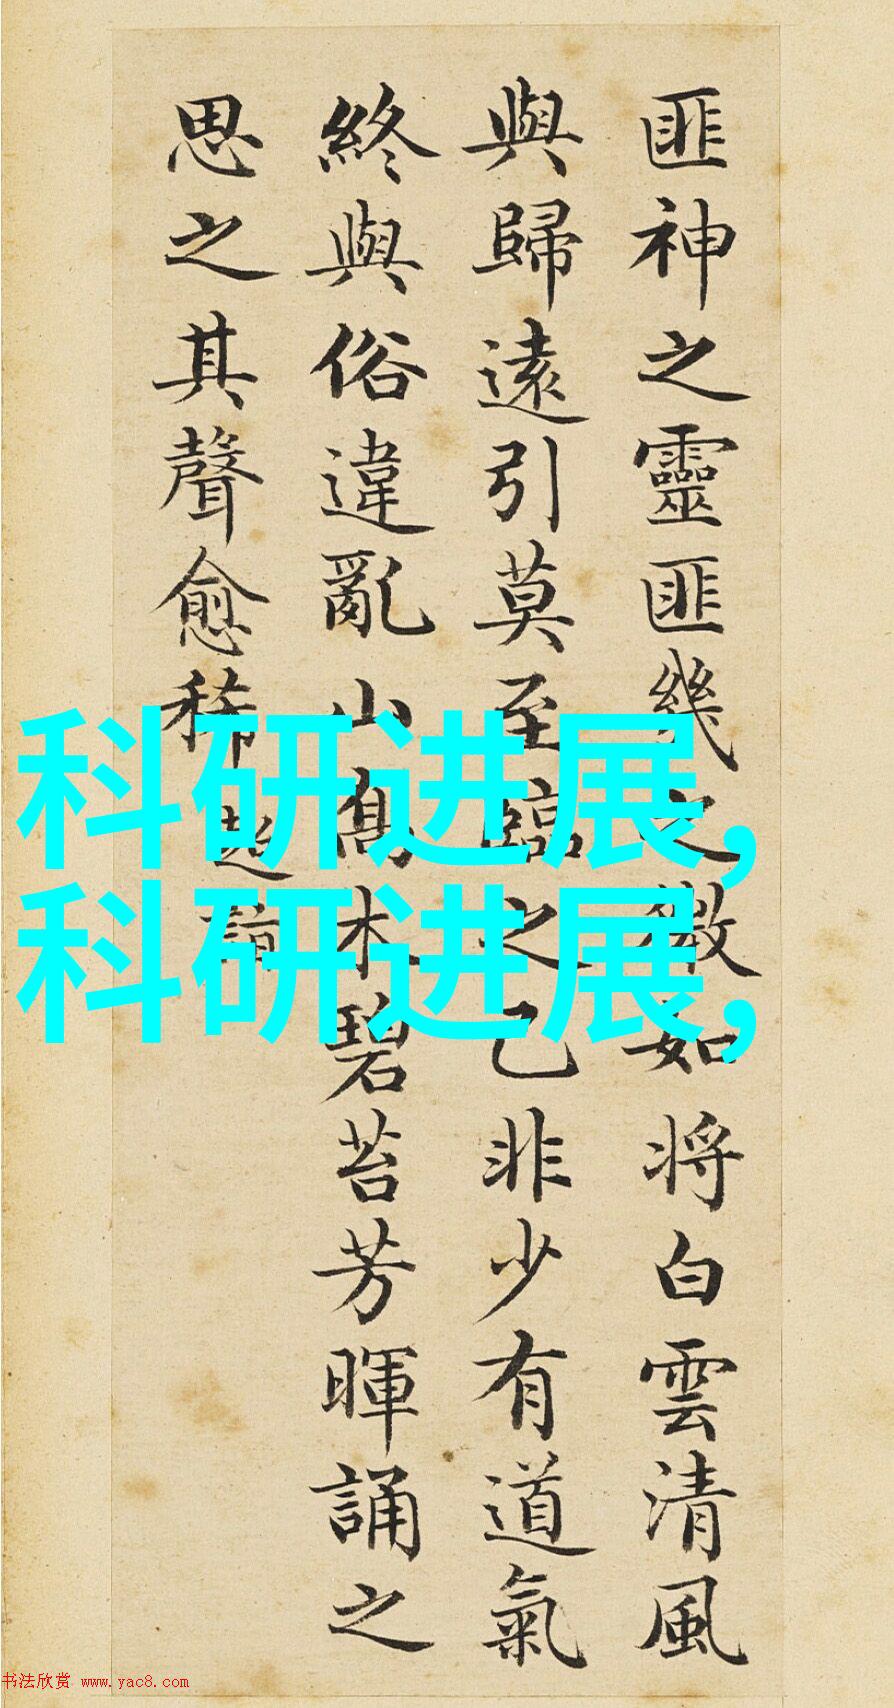 匪神之靈匪幾之微如将白雲清風
與歸遠引莫至臨之已非少有道氣
終與俗違亂山高木碧苔芳暉誦之
思之其聲愈稀
超詣
科研进展,
科研进展,
书法欣赏 www.yac8.com